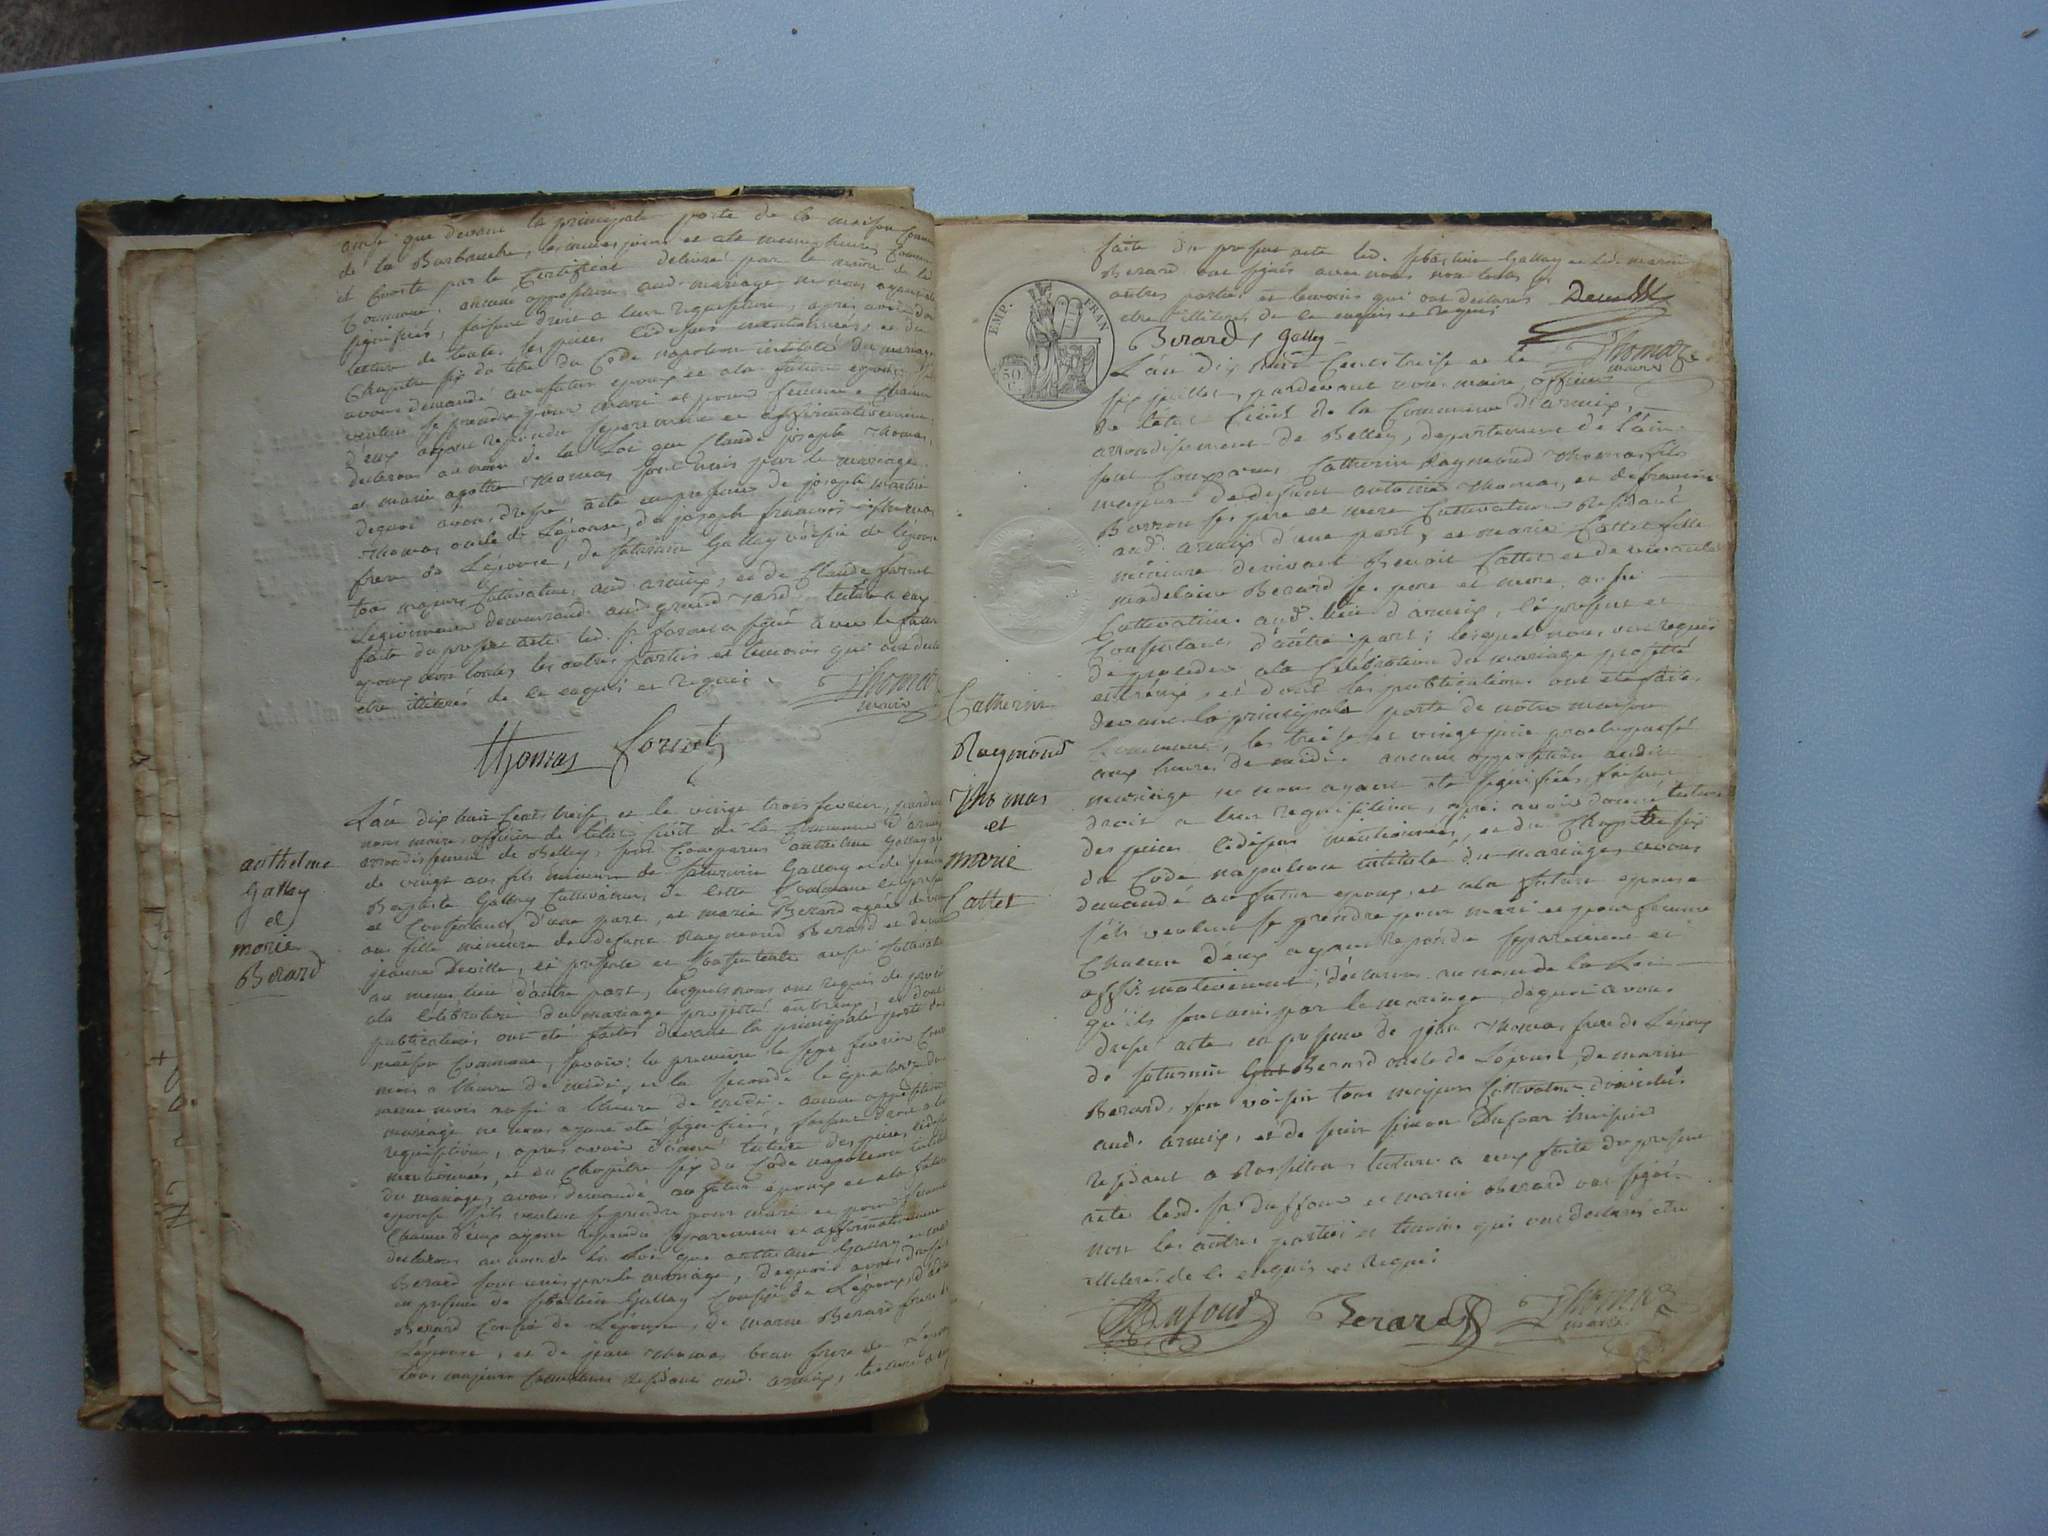 ainsi que devant la principale porte de la maison Commune
de la Burbanche, les memes jours et aux memes heures Comme
il Conste par le Certificat delivré par le maire de la dte
Commune, aucune opposition aud. mariage ne nous ayant été
signifiée, faisant droit a leur requisition, apres avoir donné
lecture de toutes les pieces cidessus mentionnées, et du
Chapitre six du titre du Code napoleon intitulé du mariage
avons demandé au futur epoux et ala future epouse s'ils
veulent se prendre pour mari et pour femme, Chacun
d'eux ayant repondu separement et affirmativement,
declarons au nom de la Loi que Claude joseph Thomas,
et marie agathe Thomas sont unis par le mariage.
dequoi avons dressé acte en presence de joseph martin
Thomas oncle de L'epouse, de joseph françois Thomas
frere de L'epouse, de saturnin Gallay voisin de l'epouse
tous majeurs Cultivateurs aud. armix, et de Claude fornet
Legionnaire demeurant aud. grand vard. lecture a eux
faite du present acte led. sr. fornet a signé avec le futur
epoux non toutes les autres parties et temoins qui ont declaré
etre illiterés de ce enquis et requis.
Thomas
maire
Thomas fornet
anthelme
Gallay
et
marie
Berard
L'an dix huit Cent treise, et le vingt trois fevrier, pardevant
nous maire, officier de l'etat Civil de la Commune d'armix
arrondissement de Belley, sont Comparus anthelme Gallay agé
de vingt ans fils mineur de saturnin Gallay et de jeanne
Baptiste Gallay Cultivateurs de Cette Commune Cy present
et Consentant, d'une part, et marie Berard agée de vingt
un fille mineure de defunt Raymond Berard et de
jeanne Devitte, ci presente et Consentante aussi Cultivatrice
au meme lieu d'autre part, lesquels nous ont requis de proceder
ala Celebration du mariage projetté entr'eux, et dont les
publications ont eté faites devant la principale porte de notre
maison Commune, savoir: la premiere le sept fevrier Courant
mois a l'heure de midi, et la seconde le quatorze du
meme mois aussi a l'heure de midi. aucune opposition aud.
mariage ne nous ayant eté signifiée, faisant droit a leur
requisition, apres avoir donné lecture des pieces cidessus
mentionnées, et du Chapitre six du Code napoleon intitulé
du mariage, avons demandé au futur epoux et ala future
epouse s'ils veulent se prendre pour mari et pour femme
Chacun d'eux ayant repondu separement et affirmativement
declarons au nom de la Loi que anthelme Gallay et marie
Berard sont unis par le mariage, dequoi avons dressé acte
en presence de sebastien Gallay Cousin de L'epoux, d'
Berard Cousin de L'epouse, de marin Berard frere de
L'epouse, et de jean Thomas beau frere de L'epoux
tous majeurs Cultivateurs residant aud. armix, lecture a eux
EMP. FRAN
50
faite du present acte led. sebastien Gallay et led. marin
Berard ont signés avec nous non toutes les
autres parties et temoins qui ont declarés
etre illiterés de ce enquis et requis
Berard Galley
Thomas
maire
L'an dix huit Cent treise et le
six juillet, pardevant nous maire, officier
de l'etat Civil de la Commune d'armix,
arrondissement de Belley, departement de l'ain
sont Comparus Catherin Raymond Thomas fils
majeur de defunt antoine Thomas, et de francoise
Borron ses pere et mere Cultivateur residant
aud. armix d'une part, et marie Cattet fille
mineure de vivant Benoit Cattet et de vivante
madelaine Berard ses pere et mere, aussi
Cultivatrice aud. lieu d'armix, ci presents et
Consentants d'autre part; lesquels nous ont requis
de proceder ala Celebration du mariage projetté
entr'eux, et dont les publications ont eté faites
devant la principale porte de notre maison
Commune, les treise et vingt juin proche passé
aux heures de midi. aucune opposition audit
mariage ne nous ayant eté signifiée, faisant
droit a leur requisition, apres avoir donné lecture
des pieces cidessus mentionnées, et du Chapitre six
du Code napoleon intitulé du mariage, avons
demandé au futur epoux, et ala future epouse
s'ils veulent se prendre pour mari et pour femme
Chacun d'eux ayant repondu separement et
affirmativement, declarons au nom de la Loi
qu'ils sont unis par le mariage, dequoi avons
dressé acte en presence de jean Thomas frere de L'epoux
de saturnin Berard oncle de L'epouse, de marin
Berard, son voisin tous majeurs Cultivateurs domiciliés
aud. armix, et de sieur simon Dufour huissier
residant a Rossillon, lecture a eux faite du present
acte lesd. sr. Duffour et marin Berard ont signé
non les autres parties et temoins qui ont declarés etre
illiterés de ce enquis et requis
Catherin
Raymond
Thomas
et
marie
Cattet
Dufour Berard Thomas
maire